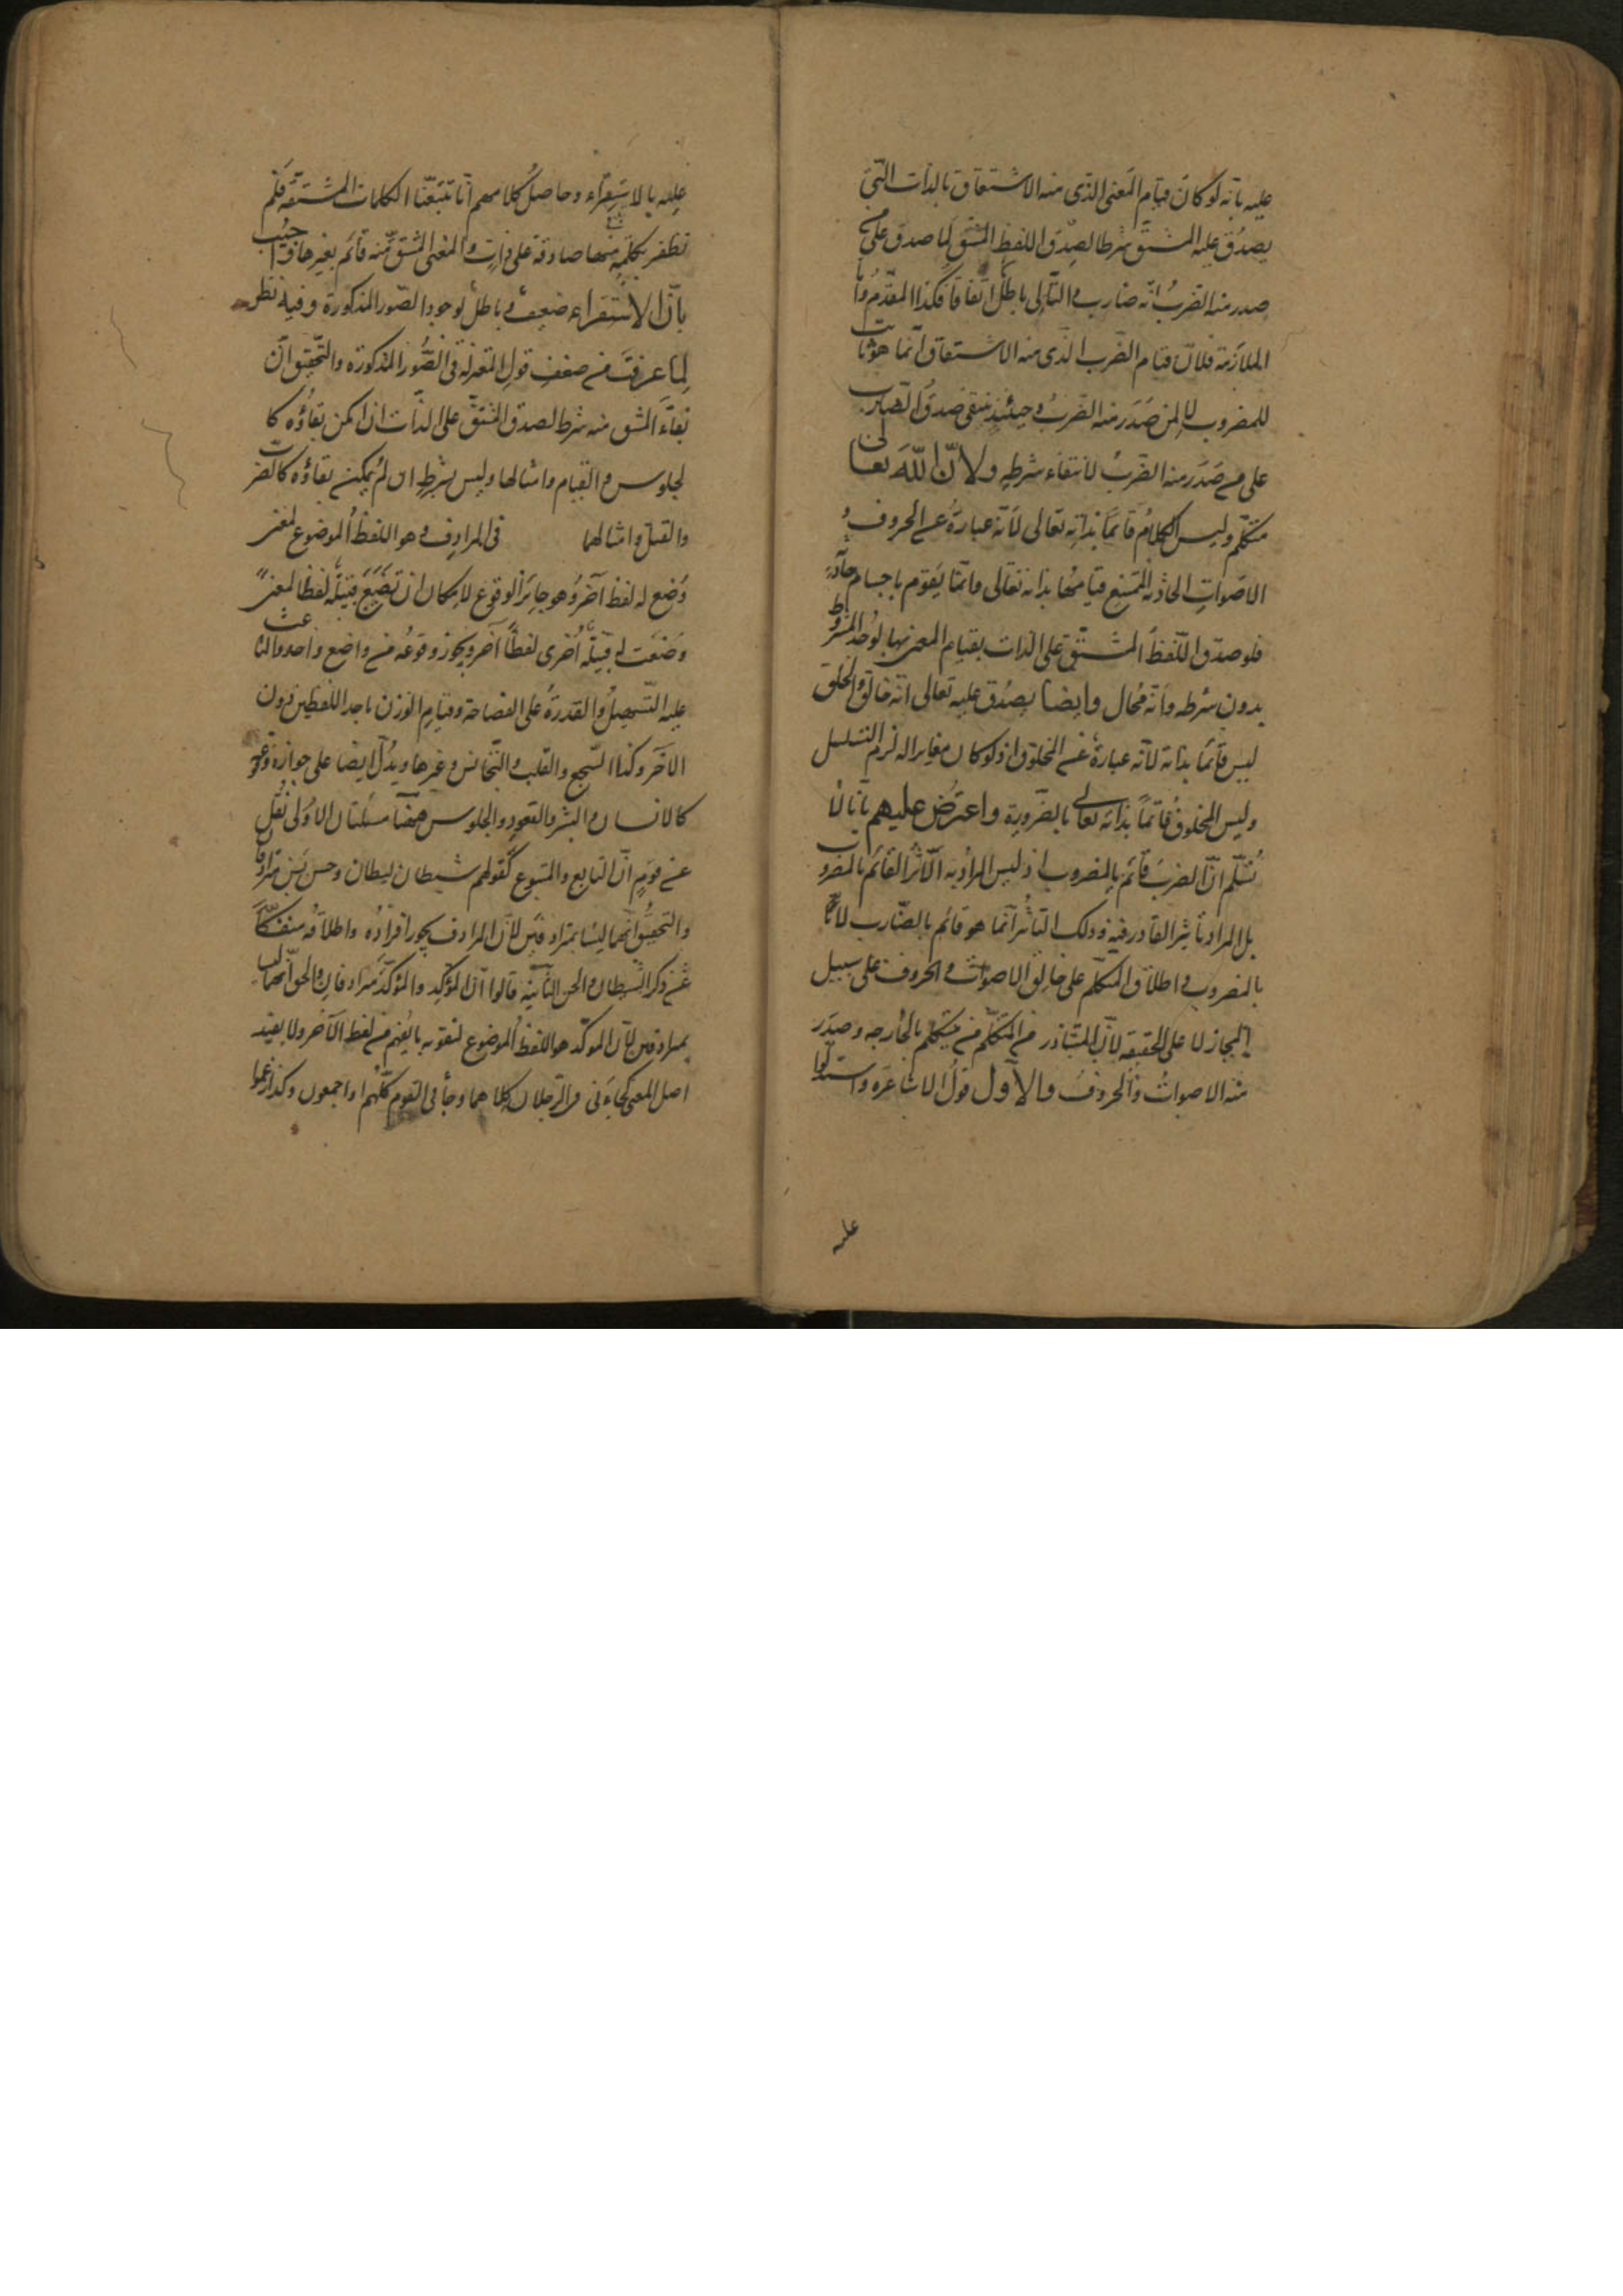 عليه بانه لو كان قيام المعنى الذى منه الاشتقاق بالذات التى
يصدق عليه المشتق شرطا لصدق اللفظ المشتق لما صدق على من
صدر منه الضرب انه ضارب والتالى باطل اتفاقا فكذا المقدم واما
الملازمة فلان قيام الضرب الذى منه الاشتقاق انما هو ثابت
للمضروب لا لمن صدر منه الضرب وحينئذ ينتفى صدق الضارب
على من صدر منه الضرب لانتفاء شرطه ولان الله تعالى
متكلم وليس الكلام قائما بذاته تعالى لانه عبارة عن الحروف و
الاصوات الحادثة الممتنع قيامها بذاته تعالى وانما يقوم باجسام حادثة
فلو صدق اللفظ المشتق على الذات بقيام المعنى بها لوجد المشروط
بدون شرطه وانه محال وايضا يصدق عليه تعالى انه خالق والخلق
ليس قائما بذاته لانه عبارة عن المخلوق اذ لو كان مغايرا له لزم التسلسل
وليس المخلوق قائما بذاته تعالى بالضرورة واعترض عليهم بانا لا
نسلم ان الضرب قائم بالمضروب اذ ليس المراد به الاثر القائم بالمضروب
بل المراد تاثير القادر فيه وذلك التاثير انما هو قائم بالضارب لا
بالمضروب واطلاق المتكلم على خالق الاصوات والحروف على سبيل
المجاز لا على الحقيقة لان المتبادر من المتكلم من يتكلم بالخارجه وصدر
منه الاصوات والحروف والاول قول الاشاعره واستدلوا
عليه
عليه بالاستقراء وحاصل كلامهم انا تتبعنا الكلمات المشتقه فلم
نظفر بكلمة منها صادقة على ذات والمعنى المشتق منه قائم بغيرها واجيب
بان الاستقراء ضعيف وباطل لوجود الصور المذكورة وفيه نظر
لما عرفت من ضعف قول المعتزلة فى الصور المذكورة والتحقيق ان
بقاء المشتق منه شرط لصدق المشتق على الذات ان امكن بقاؤه كا
لجلوس والقيام وامثالها وليس بشرط ان لم يمكن بقاؤه كالضرب
والقتل وامثالهما فى المرادف وهو اللفظ الموضوع لمعنى
وضع له لفظ آخر وهو جائز الوقوع لامكان ان تضع قبيلة لفظا لمعنى
وضعت له قبيلة أخرى لفظا آخر ويجوز وقوعه من واضع واحد والباعث
عليه التسهيل والقدرة على الفصاحة وقيام الوزن باحد اللفظين دون
الآخر وكذا السجع والقلب والتجانس وغيرها ويدل ايضا على جوازه وقوعه
كالانسان والبشر والقعود والجلوس وههنا مسئلتان الاولى نقل
عن قوم ان التابع والمتبوع كقولهم شيطان ليطان وحسن بسن مترادفان
والتحقيق انهما ليسا بمترادفين لان المرادف يجوز افراده واطلاقه منفكا
عن ذكر الشيطان والحسن الثانية قالوا ان المؤكد والمؤكد مترادفان والحق انهما ليسا
بمترادفين لان المؤكد هو اللفظ الموضوع لتقوية ما يفهم من لفظ الآخر ولا يفيد
اصل المعنى كجاءنى الرجلان كلاهما وجاءنى القوم كلهم او اجمعون وكذا زعموا